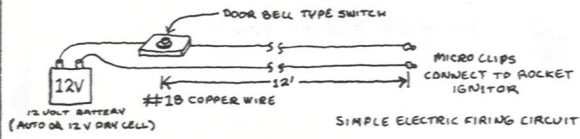 DOOR BELL TYPE SWITCH
MICRO CLIPS
CONNECT TO ROCKET
IGNITOR
12V
12'
#18 COPPER WIRE
12 VOLT BATTERY
(AUTO OR 12 V DRY CELL)
SIMPLE ELECTRIC FIRING CIRCUIT